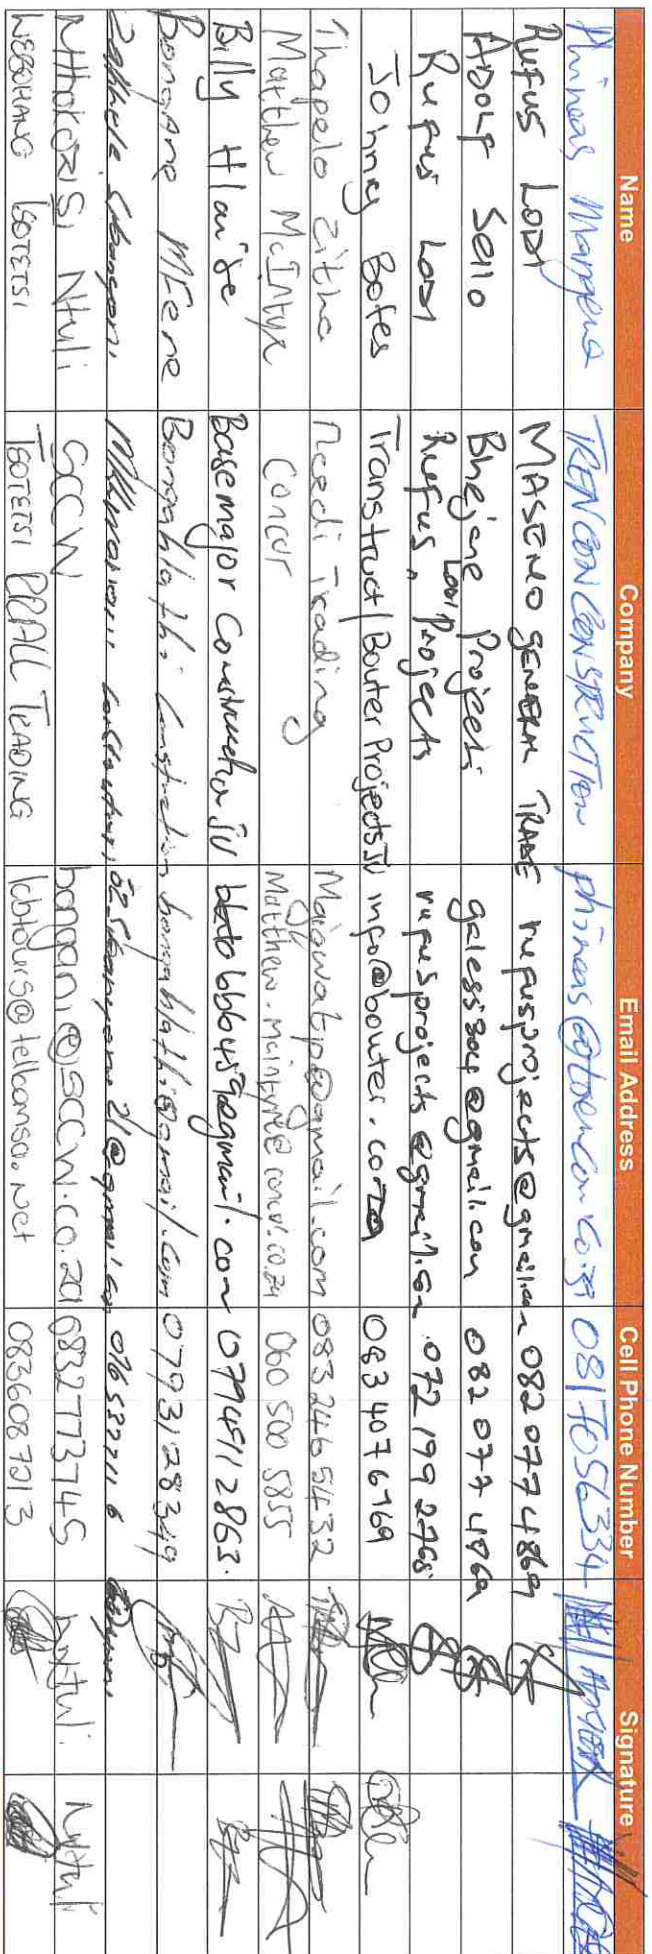 Name Company Email Address Cell Phone Number Signature
Phineas Mappena TRENCON CONSTRUCTION phineas@trencon.co.za 0817056334
Rufus Lodi MASENO GENERAL TRADE rufusprojects@gmail.com 082 077 4869
Adolf Sello Bhejane Projects galessz04@gmail.com 082 077 4969
Rufus Lodi Rufus Lodi Projects rufusprojects@gmail.com 072 199 2768
Johney Botes Transtruct/Bouter Projects JV info@bouter.co.za 083 4076769
Thapelo Zitha Needi Trading @gmail.com 083 2465432
Matthew McIntyre Concor Matthew.mcintyre@concor.co.za 060 500 5855
Billy Hlaise Basemajor Construction JV @gmail.com 0794112863.
Bongane Mfene Bongahlathi Construction bongahlathi@gmail.com 0793128349
0765327116
Nthokozisi Ntuli SCCW bongani@sccw.co.za 0832773745 Ntuli Ntuli
TSOTETSI TSOTETSI PRALL TRADING lobtours@telkomsa.net 0836087213